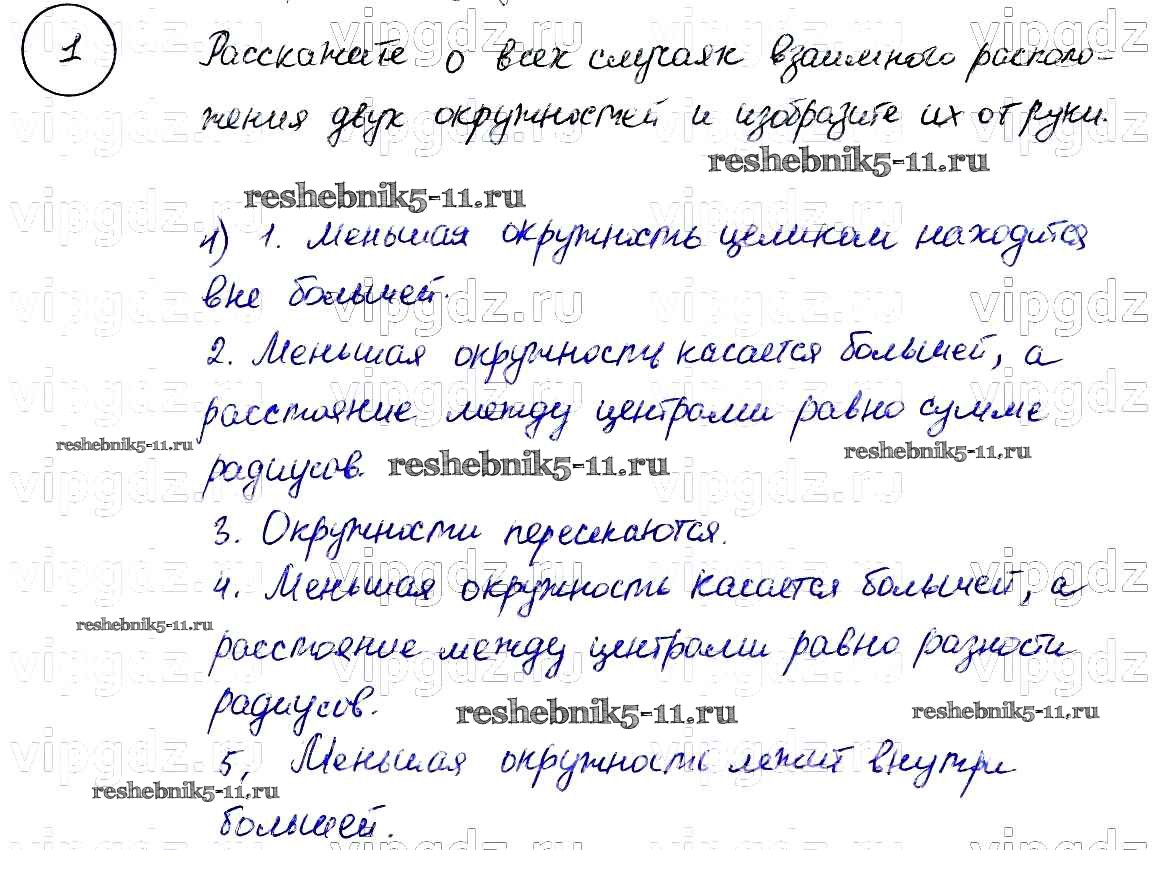 1 Расскажите о всех случаях взаимного располо-
жения двух окружностей и изобразите их от руки.
reshebnik5-11.ru
reshebnik5-11.ru
1) 1. Меньшая окружность целиком находится
вне большей.
2. Меньшая окружность касается большей, а
расстояние между центрами равно сумме
reshebnik5-11.ru
reshebnik5-11.ru
радиусов. reshebnik5-11.ru
3. Окружности пересекаются.
4. Меньшая окружность касается большей, а
reshebnik5-11.ru
расстояние между центрами равно разности
радиусов. reshebnik5-11.ru reshebnik5-11.ru
5. Меньшая окружность лежит внутри
reshebnik5-11.ru
большей.
vipgdz.ru